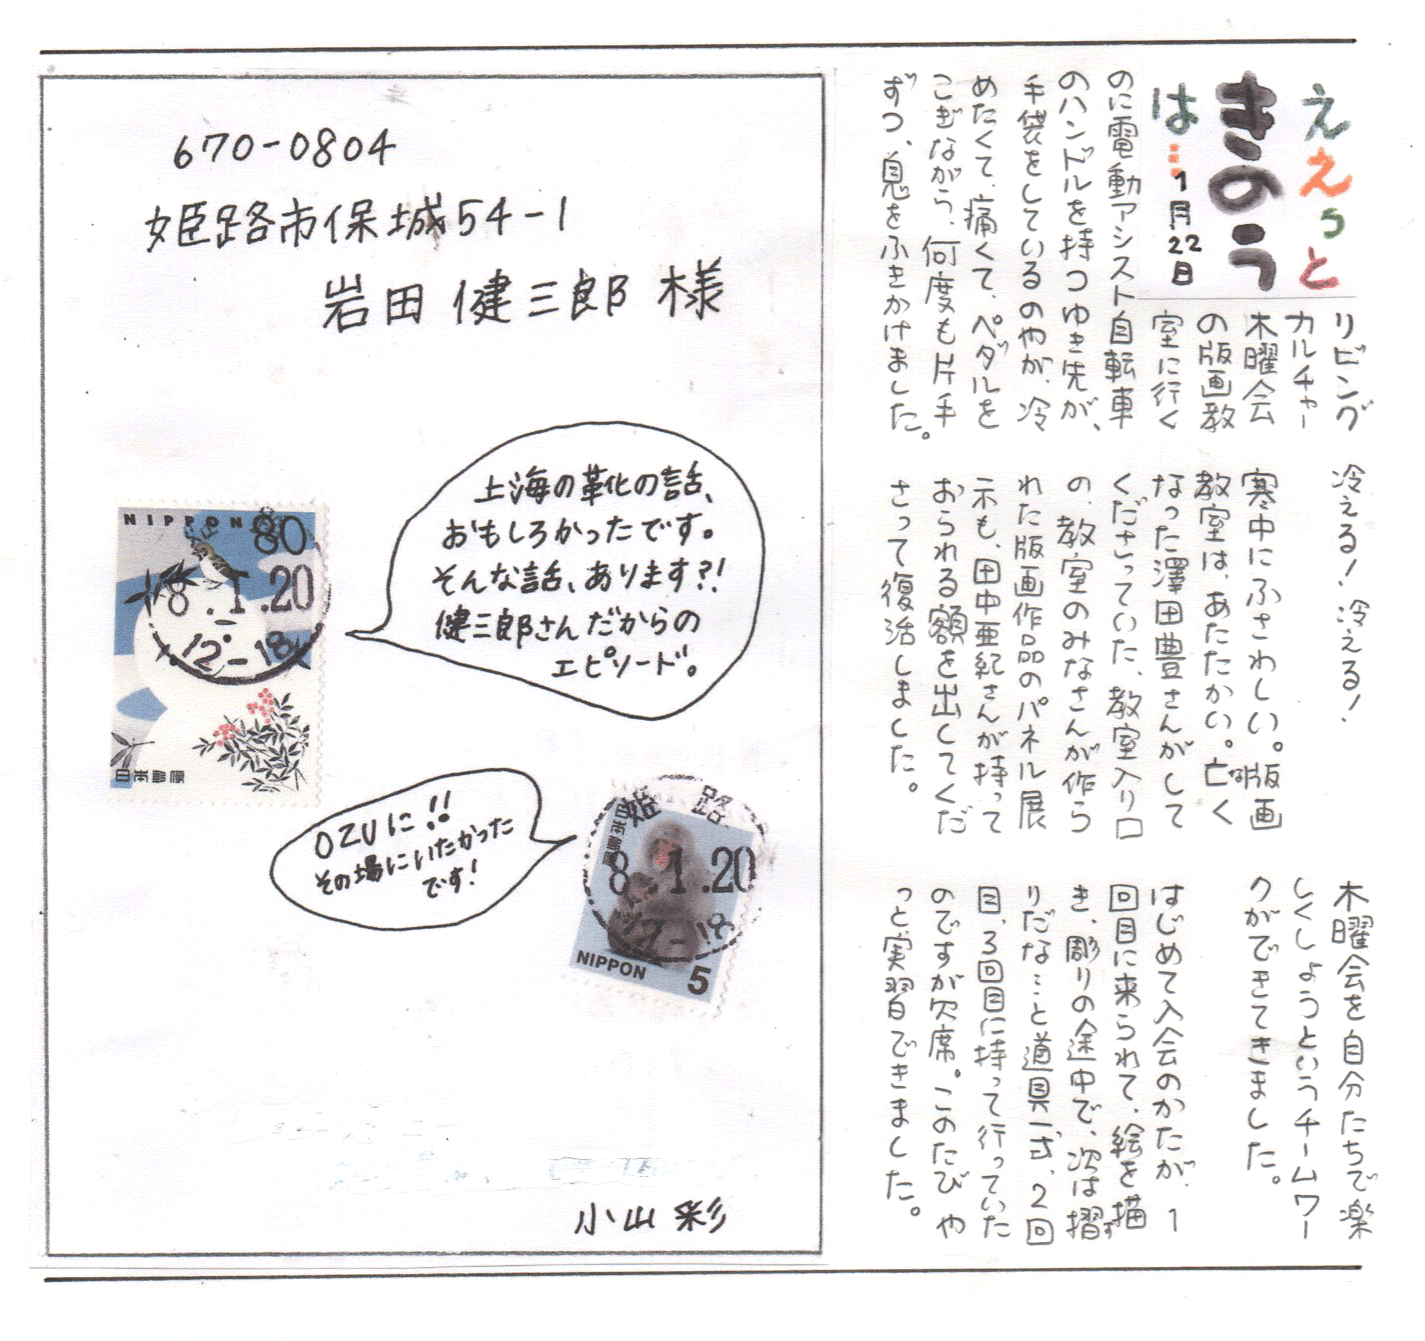 ええっと
きのう
は…
1月22日
リビング
カルチャー
木曜会
の版画教
室に行く
のに電動アシスト自転車
のハンドルを持つゆき先が、
手袋をしているのやが、冷
めたくて、痛くて、ペダルを
こぎながら、何度も片手
ずつ、息をふきかけました。
冷える!冷える!
寒中にふさわしい。版画
教室は、あたたかい。亡く
なった澤田豊さんがして
くださっていた、教室入り口
の、教室のみなさんが作ら
れた版画作品のパネル展
示も、田中亜紀さんが持って
おられる額を出してくだ
さって復活しました。
木曜会を自分たちで楽
しくしようというチームワー
クができてきました。
はじめて入会のかたが、1
回目に来られて、絵を描
き、彫りの途中で、次は摺
す
りだな…と道具一式、2回
目、3回目に持って行っていた
のですが欠席。このたび や
っと実習できました。
670-0804
姫路市保城54-1
岩田 健三郎 様
上海の革化の話、
おもしろかったです。
そんな話、あります?!
健三郎さんだからの
エピソード。
NIPPON 80
8.1.20
12-18
日本郵便
OZUに!!
その場にいたかった
です!
姫路
日本郵便
8.1.20
12-18
NIPPON 5
小山 彩